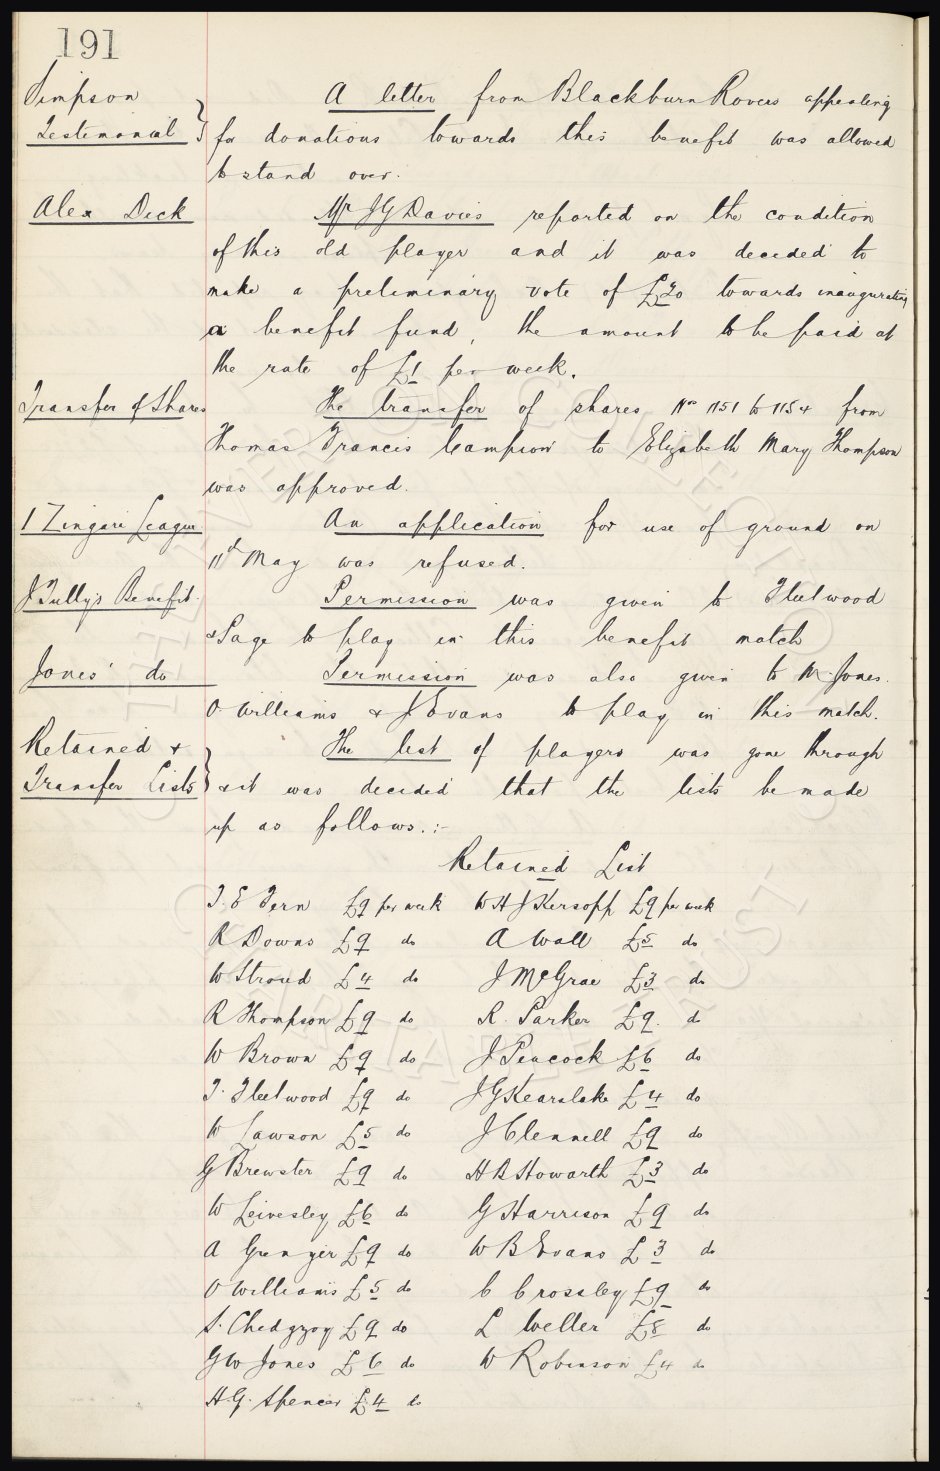 191
Simpson
Testimonial
A letter from Blackburn Rovers appealing
for donations towards this benefit was allowed
to stand over.
Alex Dick
Mr J G Davies reported on the condition
of this old player and it was decided to
make a preliminary vote of £20 towards inaugurating
a benefit fund, the amount to be paid at
the rate of £1 per week.
Transfer of Shares
The transfer of shares Nos 1151 to 1154 from
Thomas Francis Campion to Elizabeth Mary Thompson
was approved.
I Zingari League
An application for use of ground on
11th May was refused.
J Tully's Benefit.
Permission was given to Fleetwood
& Page to play in this benefit match
Jones' do
Permission was also given to Mr Jones.
O. Williams & J Evans to play in this match.
Retained &
Transfer Lists
The list of players was gone through
& it was decided that the lists be made
up as follows.:-
Retained List
T. E Fern £9 per week W H J Kersopp £9 per week
R Downs £9 do A Wall £5 do
W Stroud £4 do J McGrae £3 do
R Thompson £9 do R. Parker £9. do
W Brown £9 do J Peacock £6 do
T. Fleetwood £9 do J G Kearslake £4 do
W Lawson £5 do J Clennell £9 do
G Brewster £9 do H B Howarth £3 do
W Leivesley £6 do G Harrison £9 do
A Grenyer £9 do W B Evans £3 do
O Williams £5 do C Crossley £9 do
S. Chedgzoy £9 do L Weller £8 do
G W Jones £6 do W Robinson £4 do
H. G. Spencer £4 do